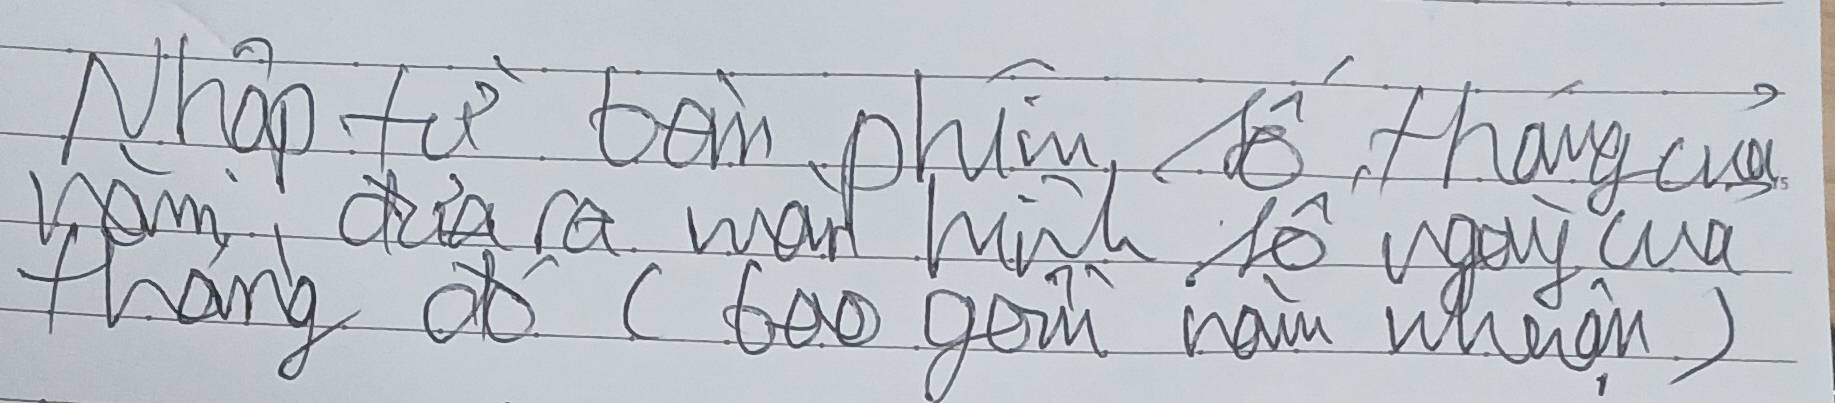 Nhập từ bàn phím số tháng của
năm, đưa ra màn hình số ngày của
tháng đó (bao gồm năm nhuận)